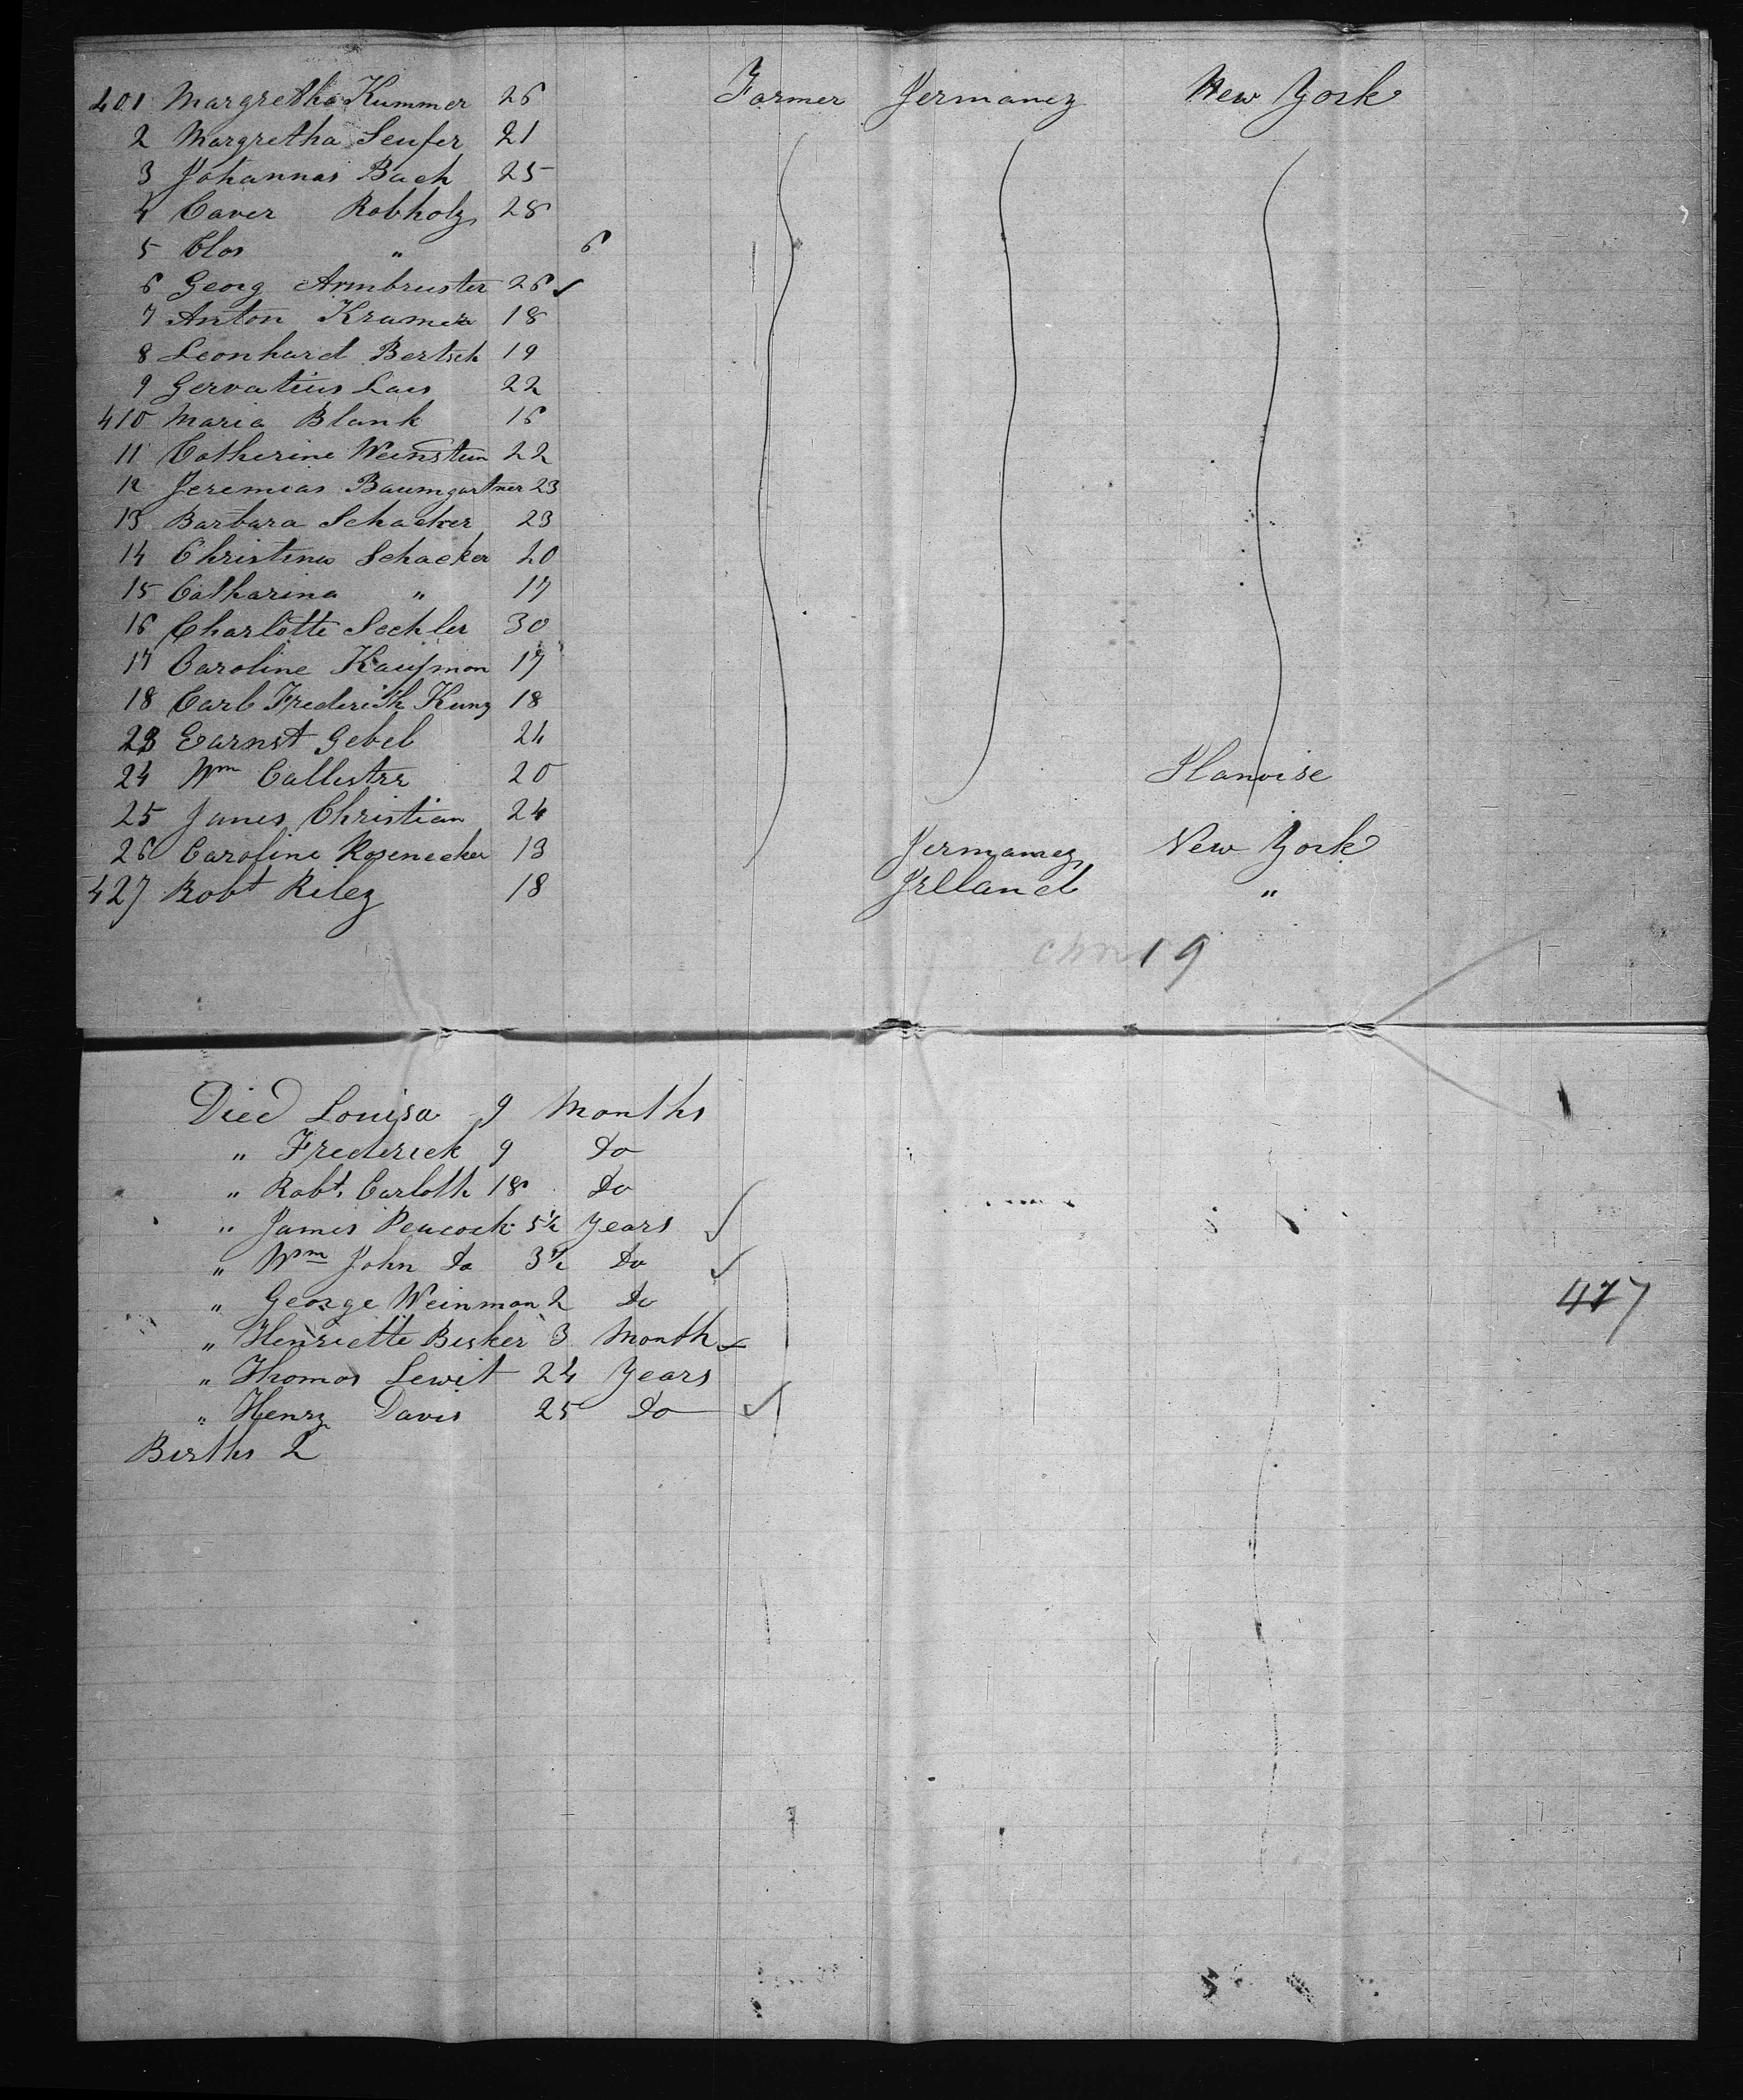 401 Margretha Kummer 26 Farmer Jermaney New York
2 Margretha Seufer 21
3 Johannas Bach 25
4 Caver Robholz 28
5 Clos " 6
6 Georg Armbruster 26 ✓
7 Anton Kramer 18
8 Leonhard Bertsch 19
9 Gervatius Laus 22
410 Maria Blank 16
11 Catherine Weinstein 22
12 Jeremias Baumgartner 23
13 Barbara Schacker 23
14 Christina Schacker 20
15 Catharina " 17
16 Charlotte Sechler 30
17 Caroline Kaufmon 17
18 Carl Frederick Kunz 18
23 Earnst Gebel 24
24 Wm Callister 20 Ilanoise
25 James Christian 24
26 Caroline Rosenecker 13 Jermaney New York
427 Robt Riley 18 Irlland "
19
Died Louisa 9 Months
" Frederick 9 Do
" Robt. Carloth 18 Do
" James Peacock 5½ Years ✓
" Wm John Do 3½ Do ✓
" George Weinman 2 Do
" Henriette Besker 3 Month
" Thomas Lewit 24 Years
" Henry Davis 25 Do ✓
Births 2
417